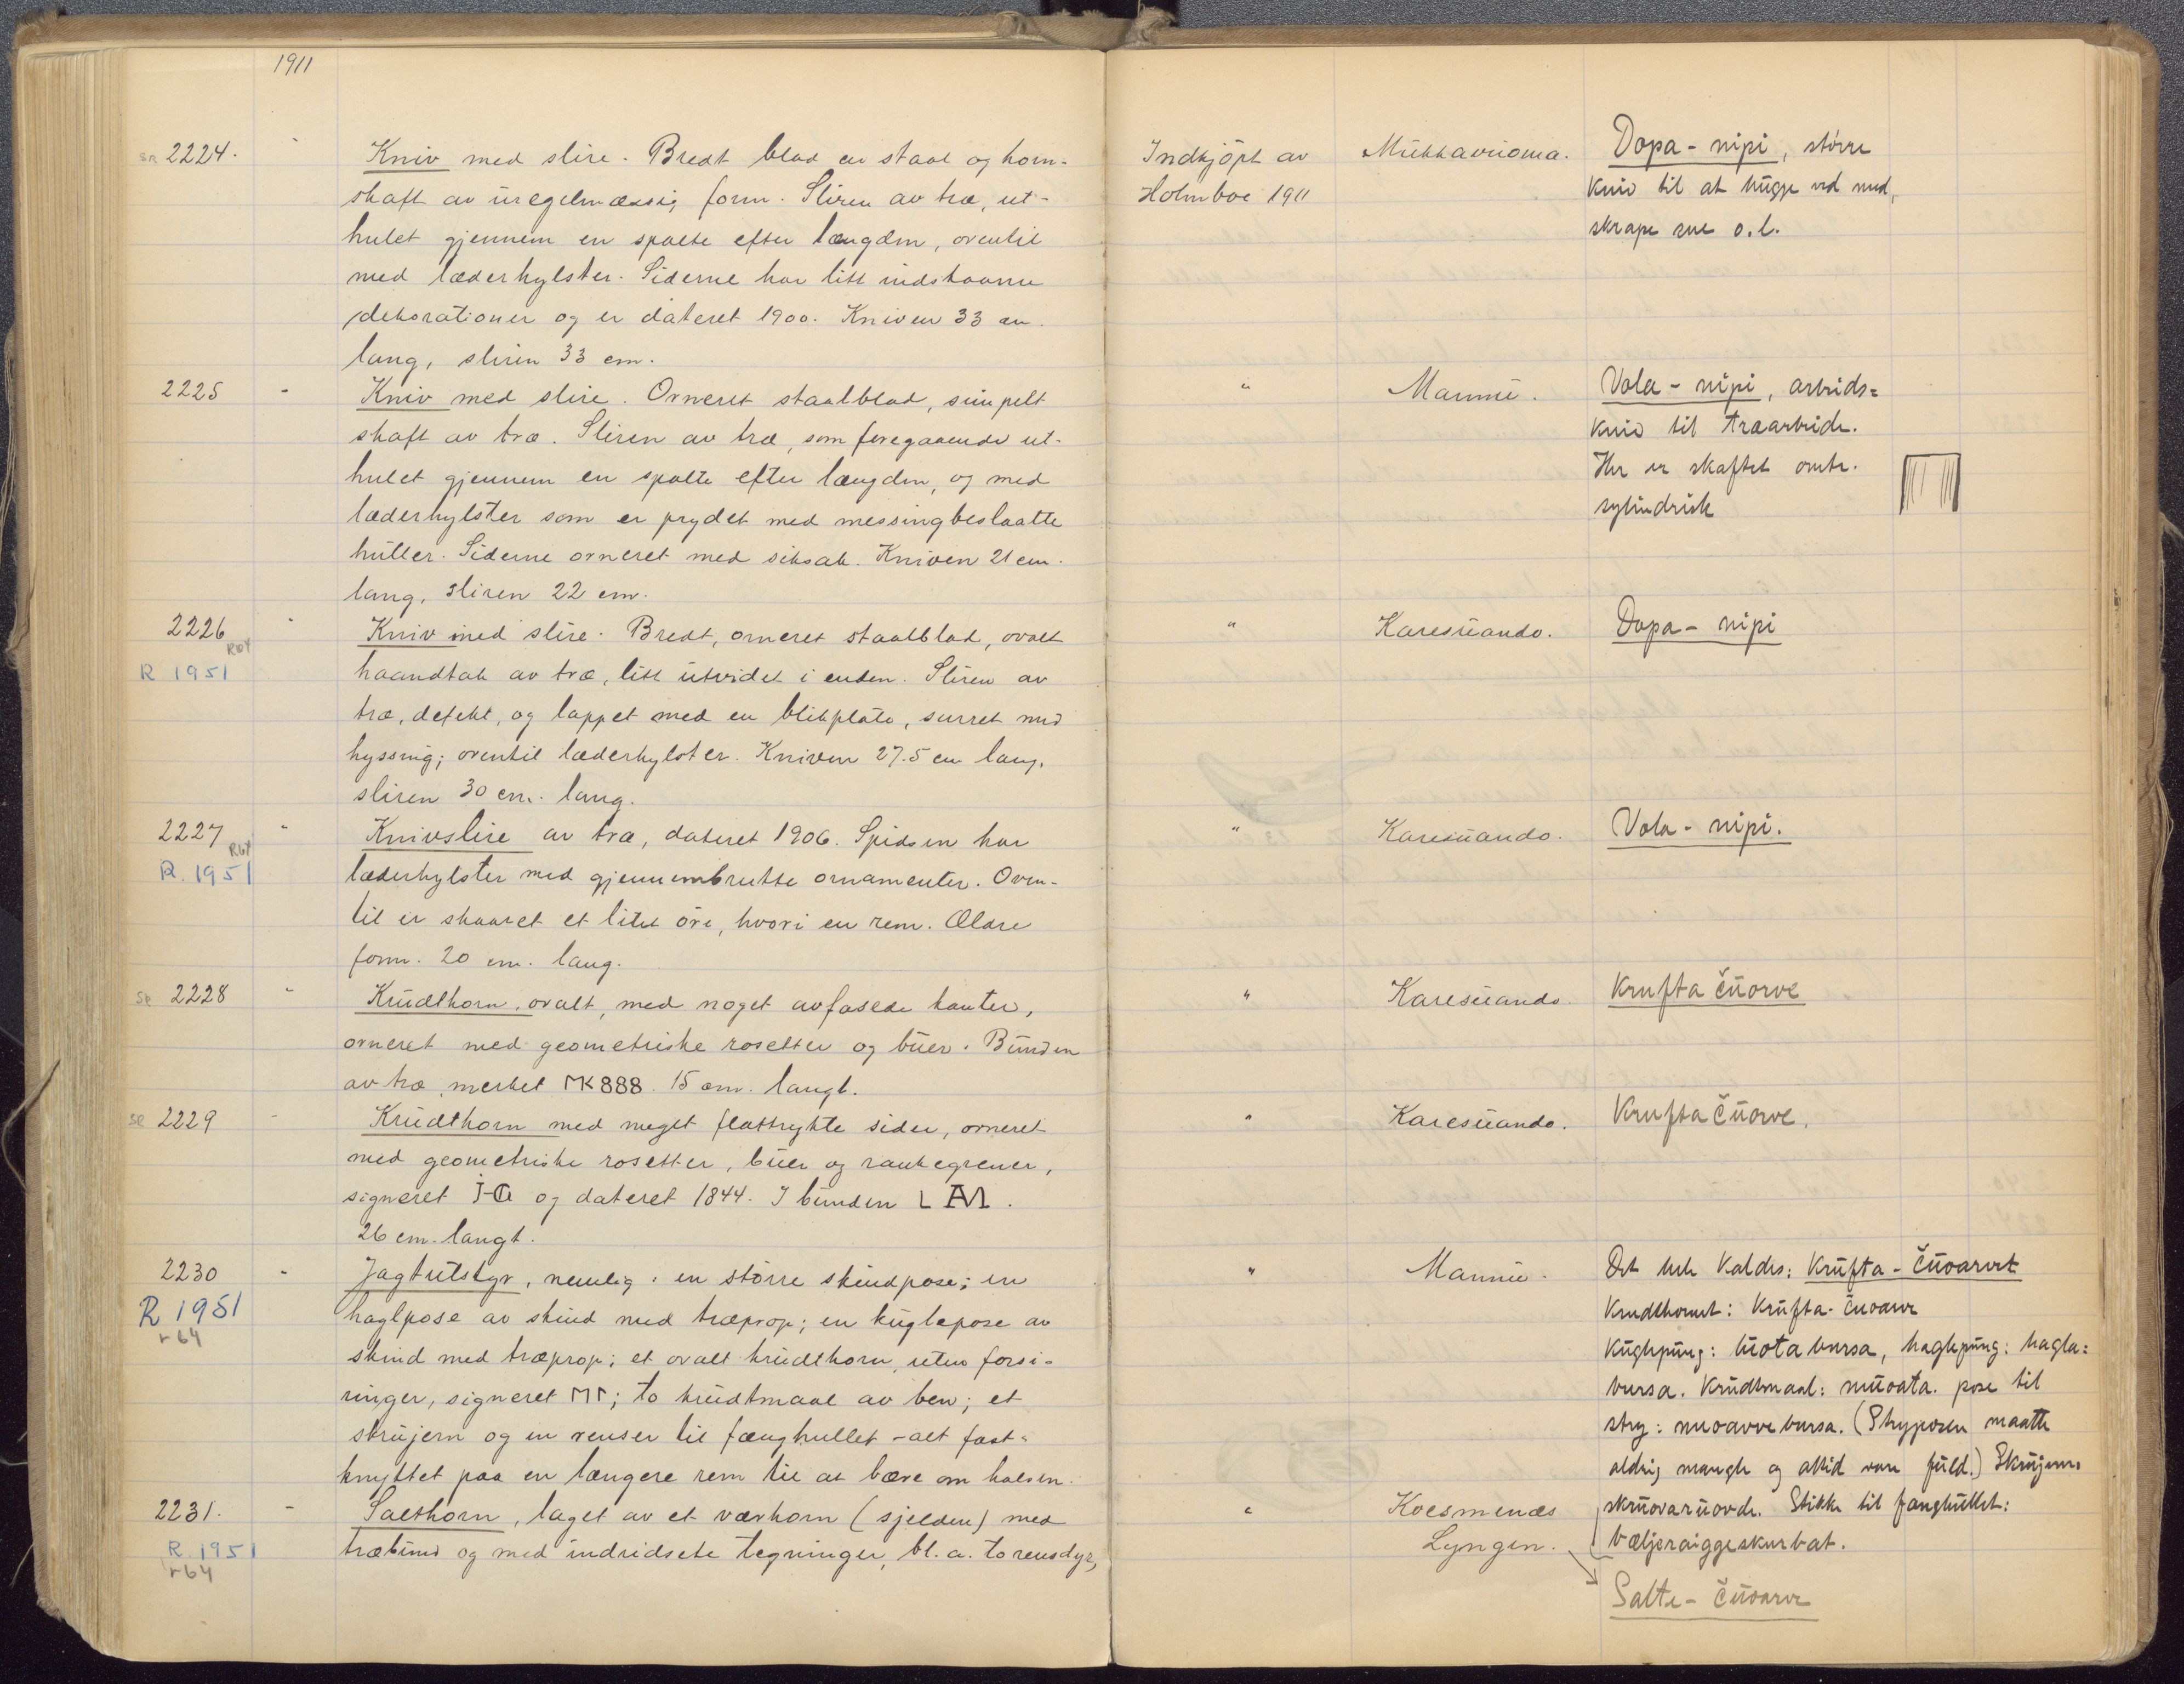 1911
sn 2224. " Kniv med slire. Bredt blad av staal og horn-
skaft av uregelmæssig form. Sliren av træ, ut-
hulet gjennem en spalte efter længden, oventil
med læderhylster. Siderne har litt indskaarne
dekorationer og er dateret 1900. Kniven 33 cm.
lang, sliren 33 cm.
2225 " Kniv med slire. Orneret staalblad, simpelt
skaft av træ. Sliren av træ, som foregaaende ut-
hulet gjennem en spalte efter længden, og med
læderhylster som er prydet med messingbeslaatte
huller. Siderne orneret med siksak. Kniven 21 cm.
lang, sliren 22 cm.
2226 " Kniv med slire. Bredt, orneret staalblad, ovalt
R 1951 haandtak av træ, litt utvidet i enden. Sliren av
træ, defekt, og lappet med en blikplate, surret med
hyssing; oventil læderhylster. Kniven 27.5 cm lang,
sliren 30 cm. lang.
2227 " Knivslire av træ, dateret 1906. Spidsen har
R. 1951 læderhylster med gjennembrutte ornamenter. Oven-
til er skaaret et litet öre, hvori en rem. Ældre
form. 20 cm. lang.
2228 " Krudthorn, ovalt, med noget avfasede kanter,
orneret med geometriske rosetter og buer. Bunden
av træ merket MK888. 15 cm. langt.
2229 " Krudthorn med meget flattrykte sider, orneret
med geometriske rosetter, buer og rankegrener,
signeret og dateret 1844. I bunden
26 cm. langt.
2230 " Jagtutstyr, nemlig: en större skindpose; en
R 1951 haglpose av skind med træprop; en kuglepose av
r 64 skind med træprop; et ovalt krudthorn, uten forsi-
ringer, signeret; to krudtmaal av ben; et
skrujern og en renser til fænghullet - alt fast-
knyttet paa en længere rem til at bære om halsen.
2231. " Salthorn, laget av et værhorn (sjelden) med
R 1951 træbund og med indridsete tegninger, bl. a. to rensdyr,
r 64
Indkjöpt av Mukkavuoma. Dopa-nipi, större
Holmboe 1911 kniv til at hugge ved med,
skrape sne o.l.
" Mannu. Vola-nipi, arbeids=
kniv til træarbeide.
Her er skaftet omtr.
sylindrisk
" Karesuando. Dopa-nipi
" Karesuando. Vola-nipi.
" Karesuando. Krufta čuorve
" Karesuando. Krufta čuorve.
" Mannu. Det hele kaldes: Krufta-čuoarvet
Krudthornet: Krufta-čuoarve
Kuglepung: luotabursa, haglepung: hagla=
bursa. Krudtmaal: muoata. pose til
stry: muoavvebursa. (Stryposen maatte
aldrig mangle og altid være fuld.) Skrujern:
" Koesmenæs skruovaruovde. Stikke til fænghullet:
Lyngen. bæljeraiggeskurbat.
Salte-čuoarve